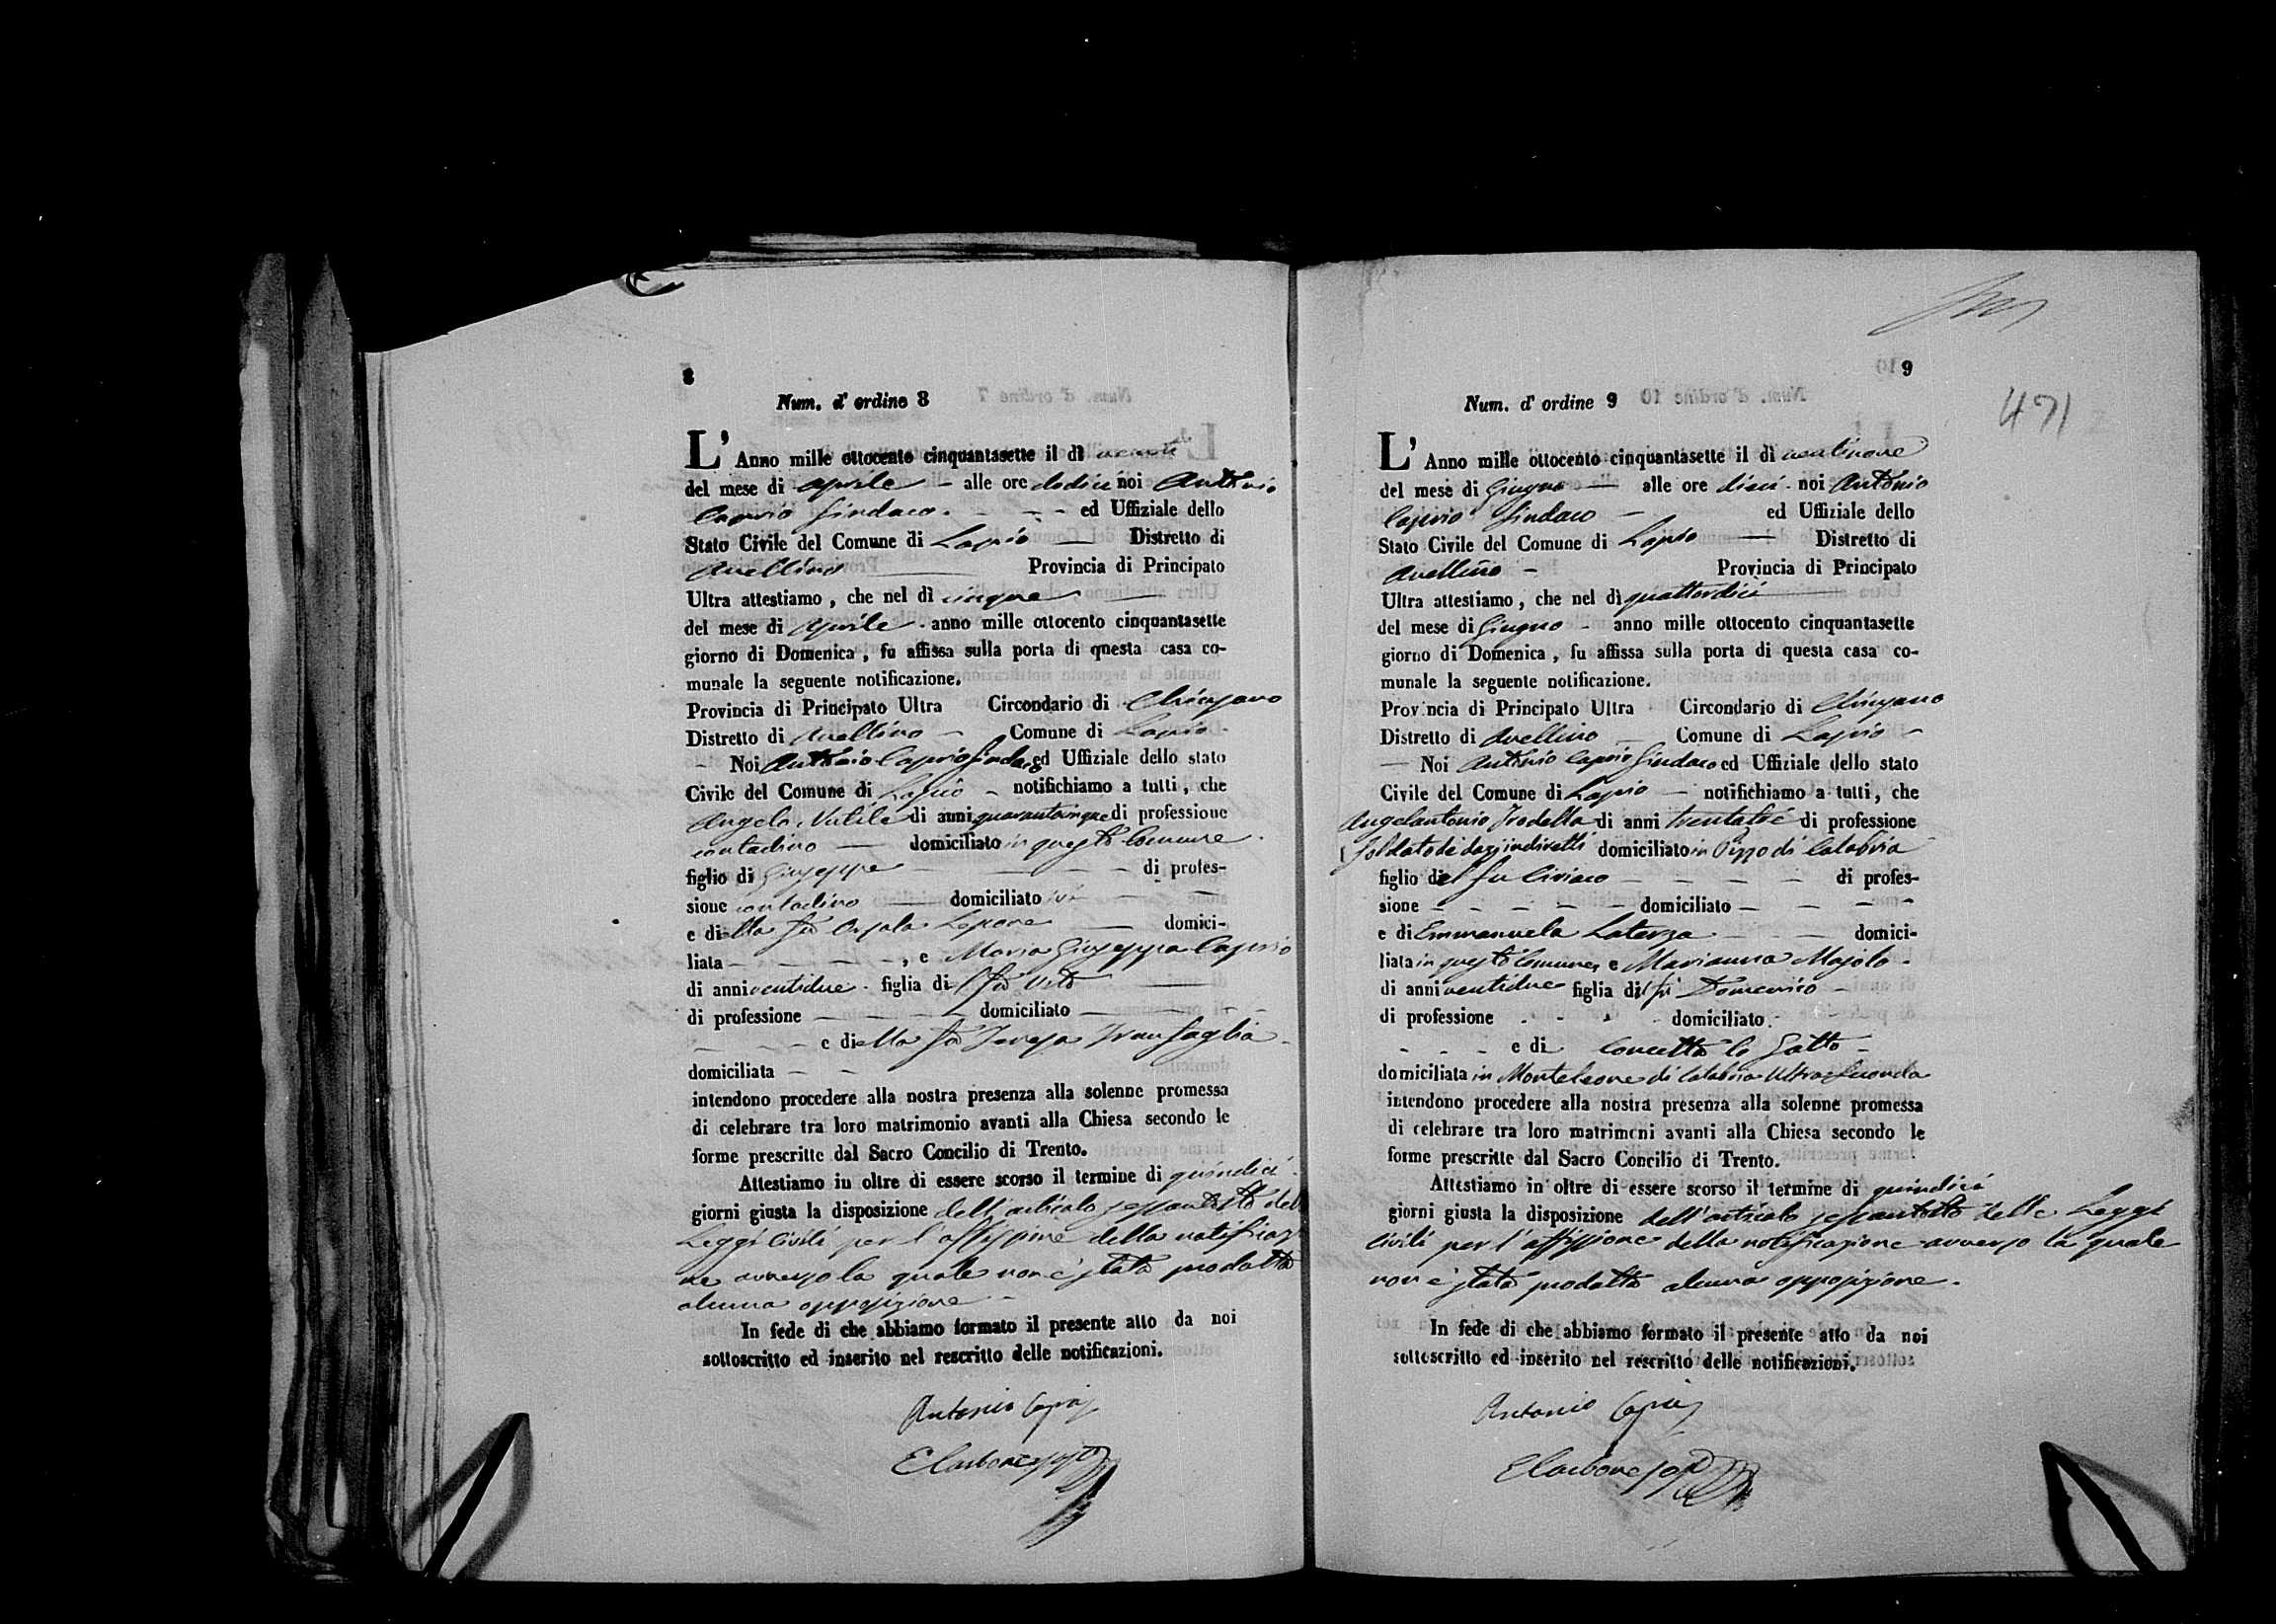 8
Num. d' ordine 8
L' Anno mille ottocento cinquantasette il dì
del mese di aprile alle ore dodici noi Antonio
Caprio Sindaco. ed Uffiziale dello
Stato Civile del Comune di Lapio Distretto di
Avellino Provincia di Principato
Ultra attestiamo, che nel dì cinque
del mese di aprile anno mille ottocento cinquantasette
giorno di Domenica, fu affissa sulla porta di questa casa co-
munale la seguente notificazione.
Provincia di Principato Ultra Circondario di Chiusano
Distretto di Avellino Comune di Lapio
Noi Antonio Caprio Sindaco ed Uffiziale dello stato
Civile del Comune di Lapio notifichiamo a tutti, che
Angelo Nutile di anni quarantacinque di professione
contadino domiciliato in questo Comune
figlio di Giuseppe di profes-
sione contadino domiciliato ivi
e della fu Orsola Lepore domici-
liata , e Maria Giuseppa Caprio
di anni ventidue figlia del fu Vito
di professione domiciliato
e della fu Teresa Tranfaglia
domiciliata
intendono procedere alla nostra presenza alla solenne promessa
di celebrare tra loro matrimonio avanti alla Chiesa secondo le
forme prescritte dal Sacro Concilio di Trento.
Attestiamo in oltre di essere scorso il termine di quindici
giorni giusta la disposizione dell'articolo sessantotto delle
Leggi Civili per l'affissione della notificazio
ne avverso la quale non è stata prodotta
alcuna opposizione
In fede di che abbiamo formato il presente atto da noi
sottoscritto ed inserito nel rescritto delle notificazioni.
Antonio Caprio
E Carbone
9
471
Num. d' ordine 9
L' Anno mille ottocento cinquantasette il dì ventinove
del mese di Giugno alle ore dieci noi Antonio
Caprio Sindaco ed Uffiziale dello
Stato Civile del Comune di Lapio Distretto di
Avellino Provincia di Principato
Ultra attestiamo, che nel dì quattordici
del mese di Giugno anno mille ottocento cinquantasette
giorno di Domenica, fu affissa sulla porta di questa casa co-
munale la seguente notificazione.
Provincia di Principato Ultra Circondario di Chiusano
Distretto di Avellino Comune di Lapio
Noi Antonio Caprio Sindaco ed Uffiziale dello stato
Civile del Comune di Lapio notifichiamo a tutti, che
Angelantonio Trodella di anni trentatré di professione
Soldato de' dazj indiretti domiciliato in Pizzo di Calabria
figlio del fu Ciriaco di profes-
sione domiciliato
e di Emmanuela Laterza domici-
liata in questo Comune, e Marianna Majolo
di anni ventidue figlia del fu Domenico
di professione domiciliato
e di Concetta lo Gatto
domiciliata in Monteleone di Calabria Ultra Seconda
intendono procedere alla nostra presenza alla solenne promessa
di celebrare tra loro matrimoni avanti alla Chiesa secondo le
forme prescritte dal Sacro Concilio di Trento.
Attestiamo in oltre di essere scorso il termine di quindici
giorni giusta la disposizione dell'articolo sessantotto delle Leggi
Civili per l'affissione della notificazione avverso la quale
non è stata prodotta alcuna opposizione.
In fede di che abbiamo formato il presente atto da noi
sottoscritto ed inserito nel rescritto delle notificazioni.
Antonio Caprio
E Carbone